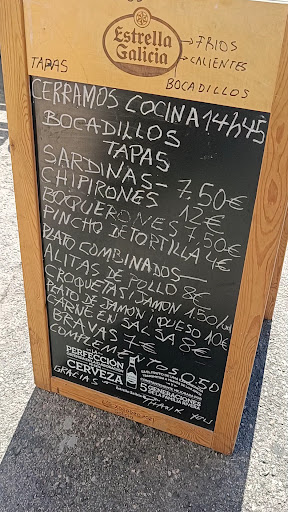 Estrella
Galicia
TAPAS
FRIOS
CALIENTES
BOCADILLOS
CERRAMOS COCINA 14h45
BOCADILLOS
TAPAS
SARDINAS - 7,50€
CHIPIRONES 12€
BOQUERONES 7,50€
PINCHO DE TORTILLA 4€
PLATO COMBINADOS
ALITAS DE POLLO 8€
CROQUETAS/JAMON 150/ud
PLATO DE JAMON/QUESO 10€
CARNE EN SALSA 8€
BRAVAS 7€
COMPLEMENTOS 0,50
PERFECCIÓN
CERVEZA
5 GENERACIONES
GRACIAS
THANK YOU